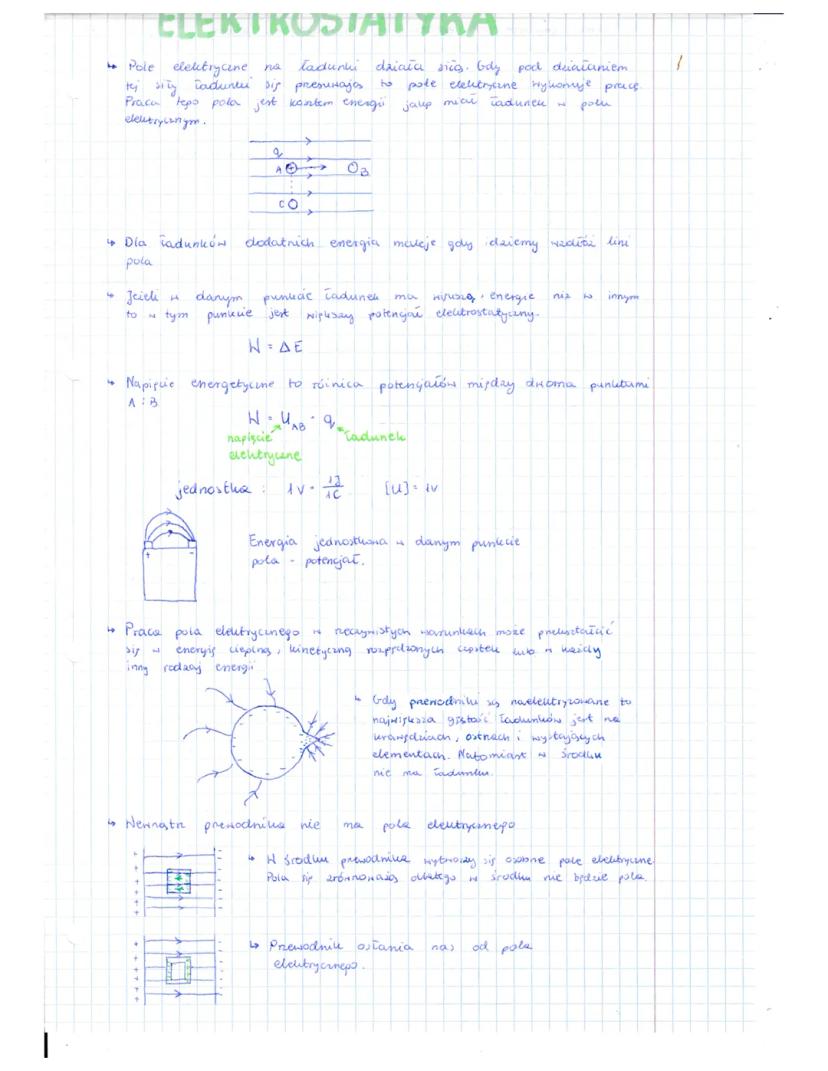 ELEKTROSTATYKA
↳ Pole elektryczne na ładunki działa siłą. Gdy pod działaniem
tej siły ładunki się przesuwają to pole elektryczne wykonuje pracę.
Praca tego pola jest kosztem energii jaką miał ładunek w polu
elektrycznym.
q
A + B
C
↳ Dla ładunków dodatnich energia maleje gdy idziemy wzdłuż lini
pola
↳ Jeżeli w danym punkcie ładunek ma większą energię niż w innym
to w tym punkcie jest większy potencjał elektrostatyczny.
W = ΔE
↳ Napięcie energetyczne to różnica potencjałów między dwoma punktami
A i B
W = U_AB · q
napięcie ładunek
elektryczne
jednostka : 1V = 1J/1C [U] = 1V
+ -
Energia jednostkowa w danym punkcie
pola - potencjał.
↳ Praca pola elektrycznego w rzeczywistych warunkach może przekształcić
się w energię cieplną, kinetyczną rozpędzonych cząstek lub w każdy
inny rodzaj energii
↳ Gdy przewodniki są naelektryzowane to
największa gęstość ładunków jest na
krawędziach, ostrzach i wystających
elementach. Natomiast w środku
nie ma ładunku.
↳ Wewnątrz przewodnika nie ma pola elektrycznego
↳ W środku przewodnika wytworzy się osobne pole elektryczne.
Pola się zrównoważą dlatego w środku nie będzie pola.
↳ Przewodnik osłania nas od pola
elektrycznego.